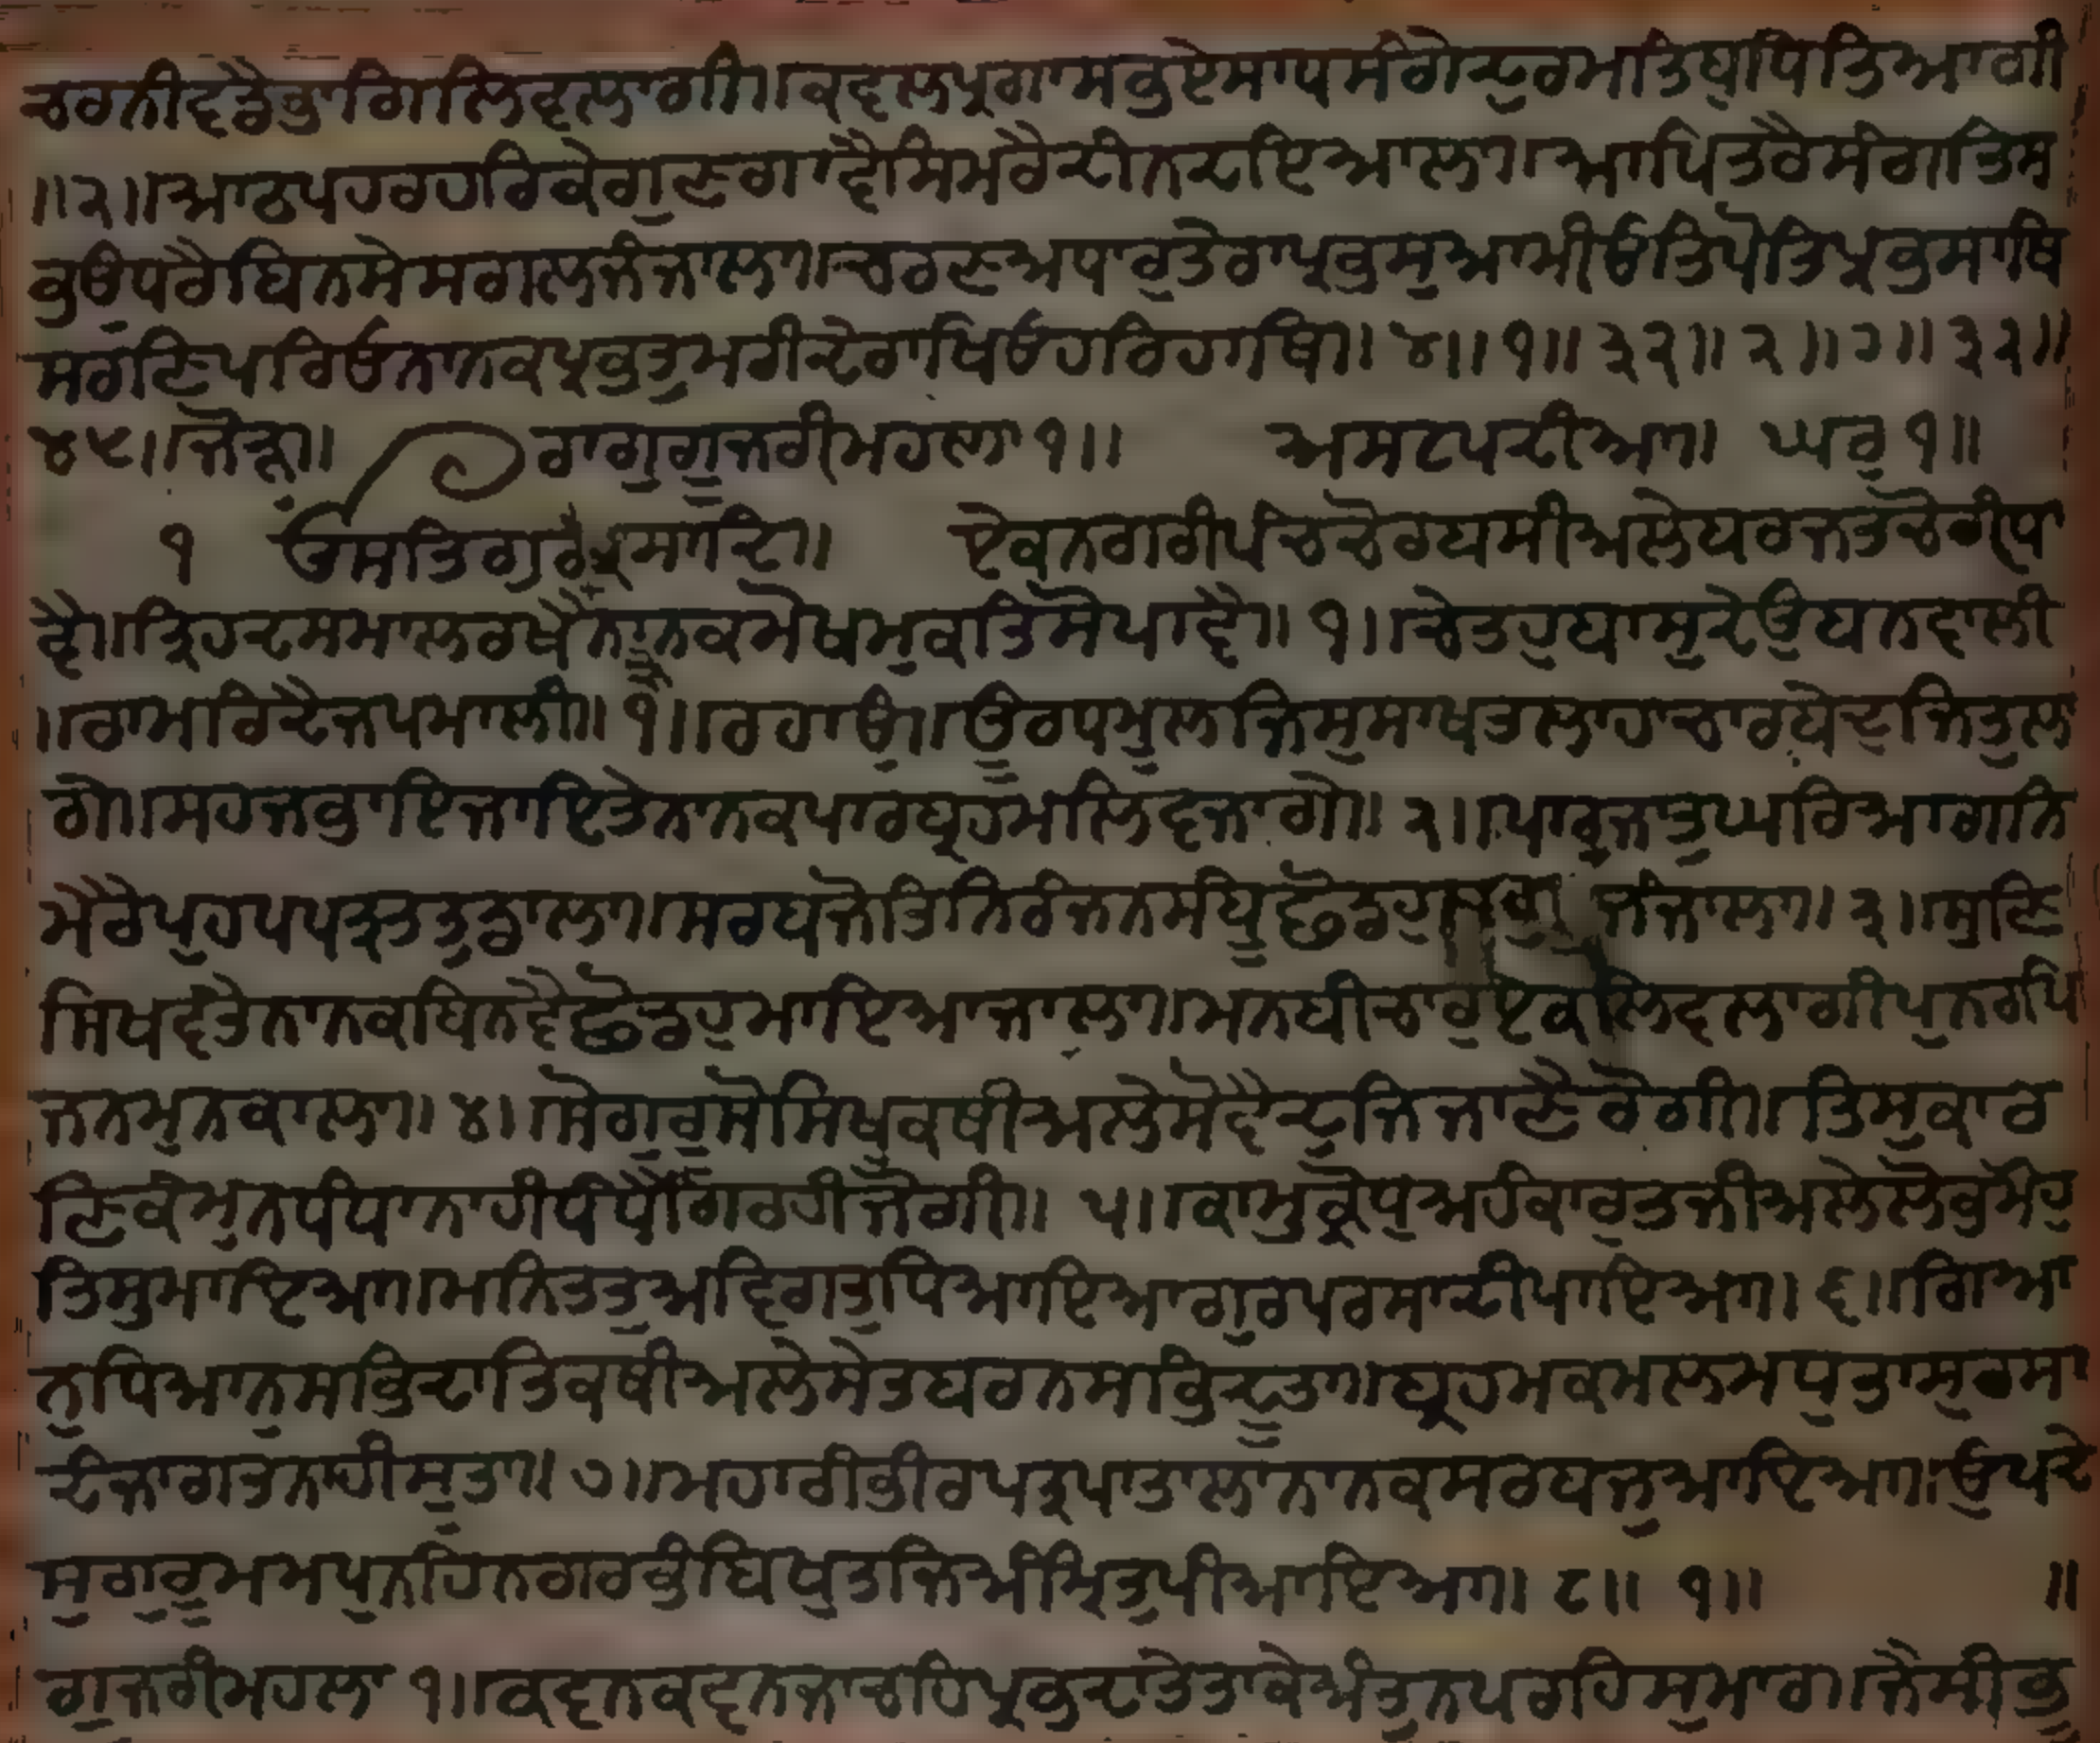 ਚਰਨੀਵਤੇਭਾਗਲਿਵਲਾਗੀ॥ਕਵਲਪ੍ਰਗਾਸਭਏਸਾਧਸੰਗੇਦੁਰਮਤਿਬੁਧਿਤਿਆਗੀ
॥੨॥ਆਠਪਹਰਹਰਿਕੇਗੁਣਗਾਵੈਸਿਮਰੈਦੀਨਦਇਆਲਾ॥ਆਪਿਤਰੈਸੰਗਤਿਸ
ਭਉਧਰੈਬਿਨਸੇਸਗਲਜੰਜਾਲਾ॥ਚਰਣਅਧਾਰੁਤੇਰਾਪ੍ਰਭਸੁਆਮੀਓਤਿਪੋਤਿਪ੍ਰਭਸਾਥਿ
ਸਰਣਿਪਰਿਓਨਾਨਕਪ੍ਰਭਤੁਮਰੀਦੇਰਾਖਿਓਹਰਿਹਾਥਿ॥੪॥੧॥੩੨॥੨॥੭॥੩੨॥
੪੫॥ਜੋੜੁ॥ ਰਾਗੁਗੂਜਰੀਮਹਲਾ੧॥ ਅਸਟਪਦੀਆ॥ ਘਰੁ੧॥
ੴਸਤਿਗੁਰਪ੍ਰਸਾਦਿ॥ ਏਕਨਗਰੀਪੰਚਚੋਰਬਸੀਅਲੇਬਰਜਤਚੋਰੀਧਾ
ਵੈ॥ਤ੍ਰਿਹਦਸਮਾਲਰਖੈਜੋਨਾਨਕਮੋਖਮੁਕਤਿਸੋਪਾਵੈ॥੧॥ਚੇਤਹੁਬਾਸੁਦੇਉਬਨਵਾਲੀ
॥ਰਾਮਰਿਦੈਜਪਮਾਲੀ॥੧॥ਰਹਾਉ॥ਉਰਧਮੂਲਜਿਸੁਸਾਖਤਲਾਹਾਚਾਰਬੇਦਜਿਤੁਲਾ
ਗੇ॥ਸਹਜਭਾਇਜਾਇਤੇਨਾਨਕਪਾਰਬ੍ਰਹਮਲਿਵਜਾਗੇ॥੨॥ਪਾਰਜਾਤੁਘਰਿਆਗਨਿ
ਮੇਰੈਪੁਹਪਪਤ੍ਰਤਤੁਡਾਲਾ॥ਸਰਬਜੋਤਿਨਿਰੰਜਨਸੰਭੂਛੋਡਹੁ ਜੰਜਾਲਾ॥੩॥ਸੁਣਿ
ਸਿਖਵੰਤੇਨਾਨਕਬਿਨਵੈਛੋਡਹੁਮਾਇਆਜਾਲਾ॥ਮਨਬੀਚਾਰੁਏਕਲਿਵਲਾਗੀਪੁਨਰਪਿ
ਜਨਮੁਨਕਾਲਾ॥੪॥ਸੋਗੁਰੂਸੋਸਿਖੁਕਥੀਅਲੇਸੋਵੈਦੁਜਿਜਾਣੈਰੋਗੀ॥ਤਿਸੁਕਾਰ
ਣਿਕੰਮੁਨਧੰਧਾਨਾਹੀਧੰਧੈਗਿਰਹੀਜੋਗੀ॥੫॥ਕਾਮੁਕ੍ਰੋਧੁਅਹੰਕਾਰੁਤਜੀਅਲੇਲੋਭੁਮੋਹੁ
ਤਿਸੁਮਾਇਆ॥ਮਨਿਤਤੁਅਵਿਗਤੁਧਿਆਇਆਗੁਰਪਰਸਾਦੀਪਾਇਆ॥੬॥ਗਿਆ
ਨੁਧਿਆਨੁਸਭਿਦਾਤਿਕਥੀਅਲੇਸੇਤਬਰਨਸਭਿਦੂਤਾ॥ਬ੍ਰਹਮਕਮਲਮਧੁਤਾਸੁਰਸਾ
ਦੰਜਾਗਤਨਾਹੀਸੂਤਾ॥੭॥ਮਹਾਗੰਭੀਰਪਤ੍ਰਪਾਤਾਲਾਨਾਨਕਸਰਬਜੁਆਇਆ॥ਉਪਦੇ
ਸੁਗੁਰੂਮਮਪੁਨਹਿਨਗਰਭੰਬਿਖੁਤਜਿਅੰਮ੍ਰਿਤੁਪੀਆਇਆ॥੮॥੧॥ ॥
ਗੂਜਰੀਮਹਲਾ੧॥ਕਵਨਕਵਨਜਾਚਹਿਪ੍ਰਭਦਾਤੇਤਾਕੇਅੰਤੁਨਪਰਹਿਸੁਮਾਰ॥ਜੈਸੀਭੂ